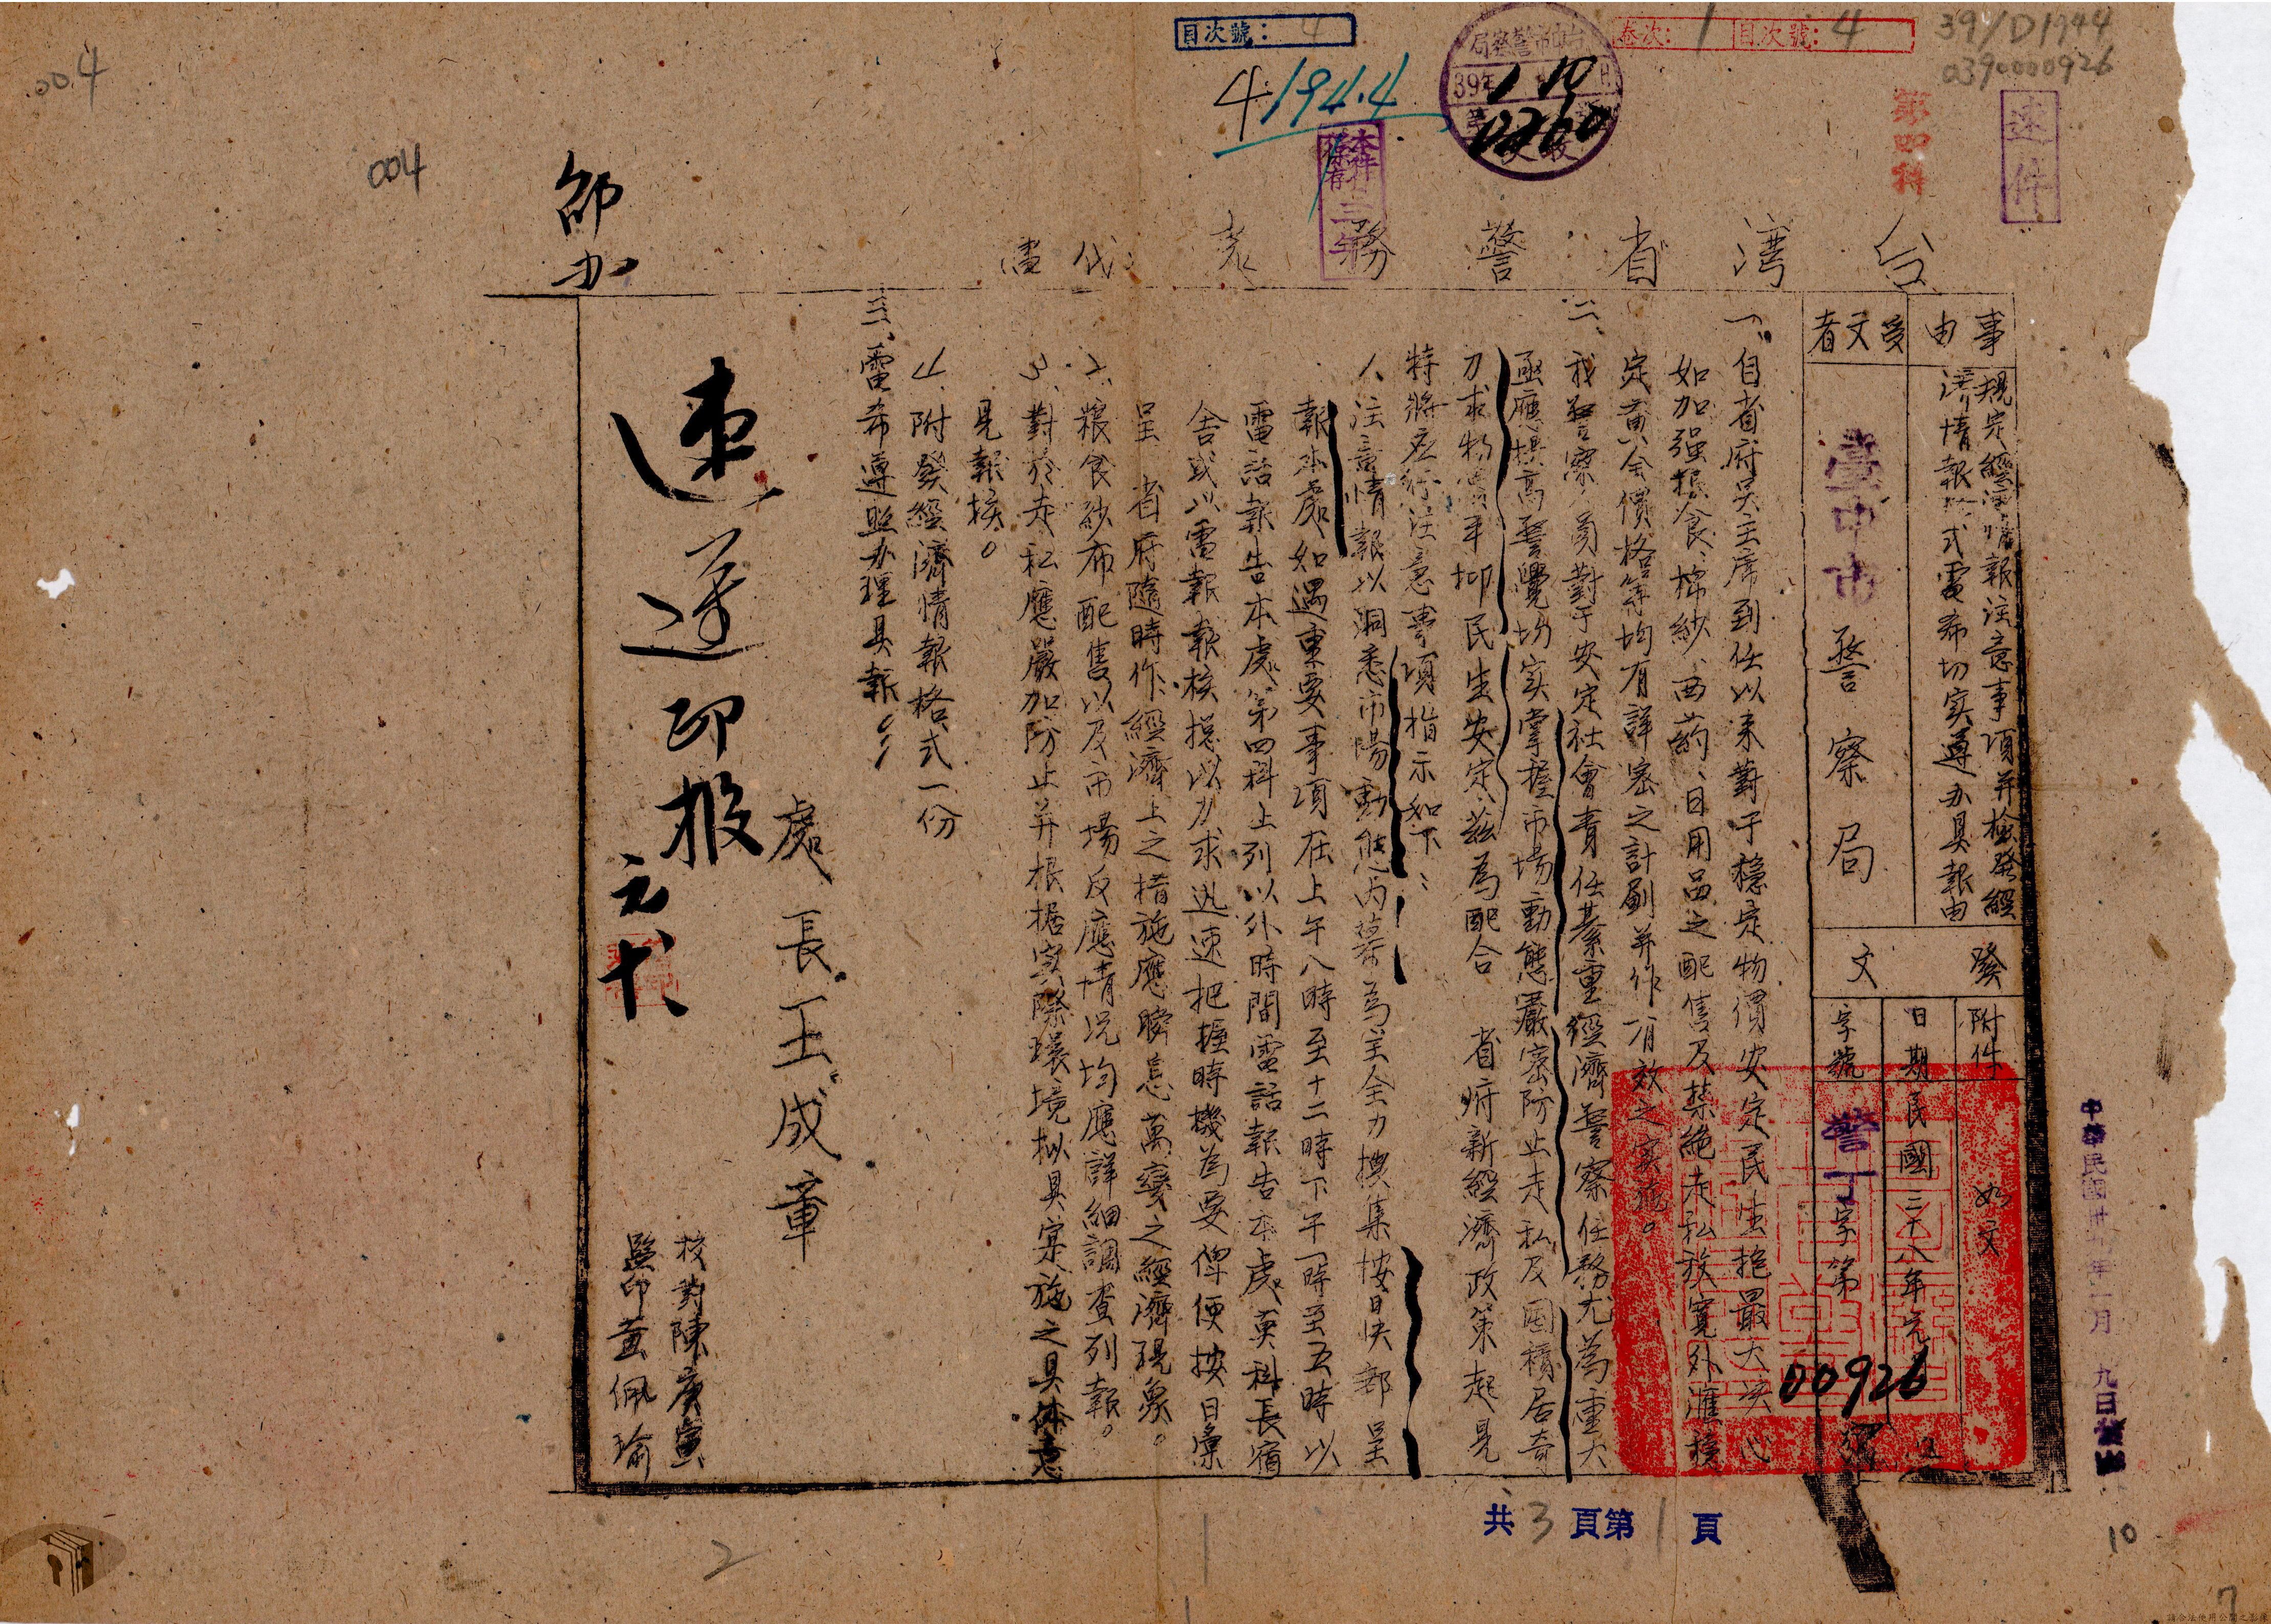 目次號：4
卷次：1 目次號：4
39/D1944
0390000926
004
004
4 194.4
台中市警察局
39年1 10
0260
本件保存三年
第四科
速件
台灣省警務處代電
事由
規定經濟情報注意事項并檢發經
濟情報格式電希切实遵办具報由
受文者
臺中市警察局
發文
附件 如文
日期 民國三十八年元月
字號 警丁字第00926號
一、自省府吳主席到任以來對于穩定物價安定民生抱最大決心
如加强粮食、棉紗、西葯、日用品之配售及禁絕走私放寬外滙穩
定黃金價格等均有詳密之計劃并作有效之实施。
二、我警察人員對于安定社會責任綦重經濟警察任務尤為重大
亟應提高警覺切实掌握市場動態嚴密防止走私及囤積居奇
力求物價平抑民生安定茲為配合 省府新經濟政策起見
特將应行注意事項指示如下：
1、注意情報以洞悉市場動態內幕為主全力摸集按日快郵呈
報本處如遇重要事項在上午八時至十二時下午一時至五時以
電話報告本處第四科上列以外時間電話報告本處莫科長宿
舍或以電報報核總以力求迅速把握時機為要俾便按日彙
呈 省府隨時作經濟上之措施應瞬息萬變之經濟現象。
2、粮食紗布配售以及市場反應情况均應詳細調查列報。
3、對於走私應嚴加防止并根據实際環境拟具实施之具体意
見報核。
4、附發經濟情報格式一份
三、電希遵照办理具報
處長王成章
校對陳庚寅
監印黃佩瑜
邵办
速遵印报
元十
中華民國卅九年一月九日發出
共3頁第1頁
2
1
10
7